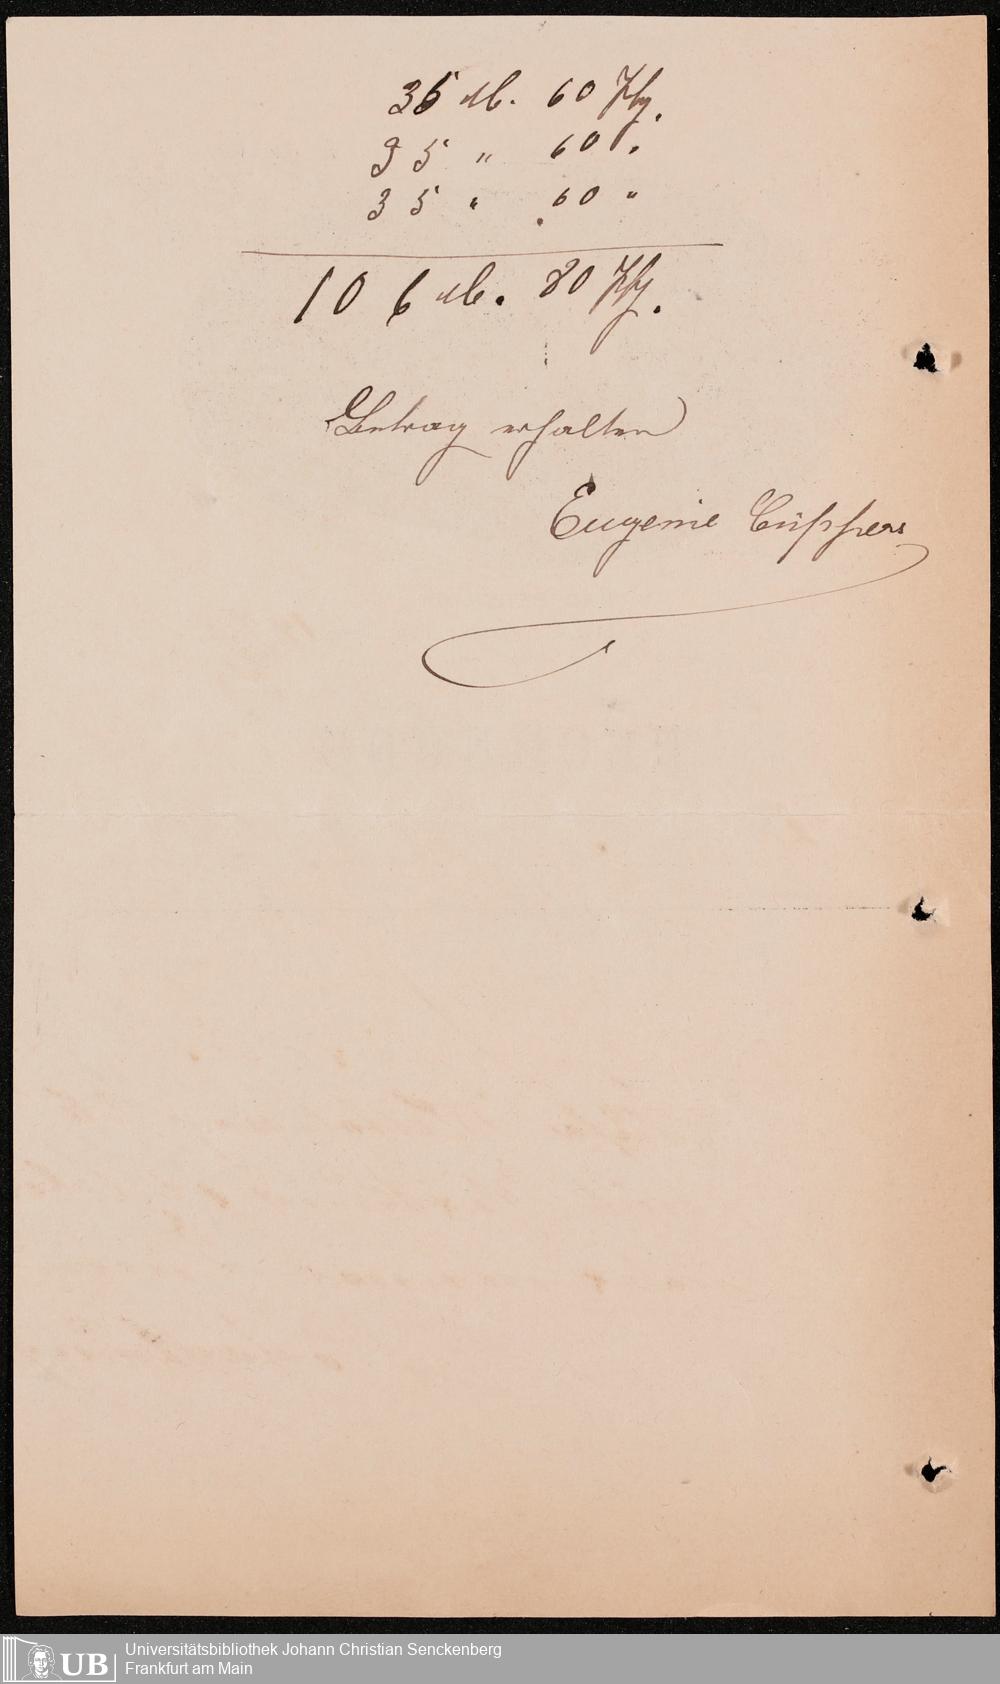 35 M. 60 Pfg.
35 " 60 "
35 " 60 "
106 M. 80 Pfg.
Betrag erhalten
Eugenie Cüppers
UB
Universitätsbibliothek Johann Christian Senckenberg
Frankfurt am Main